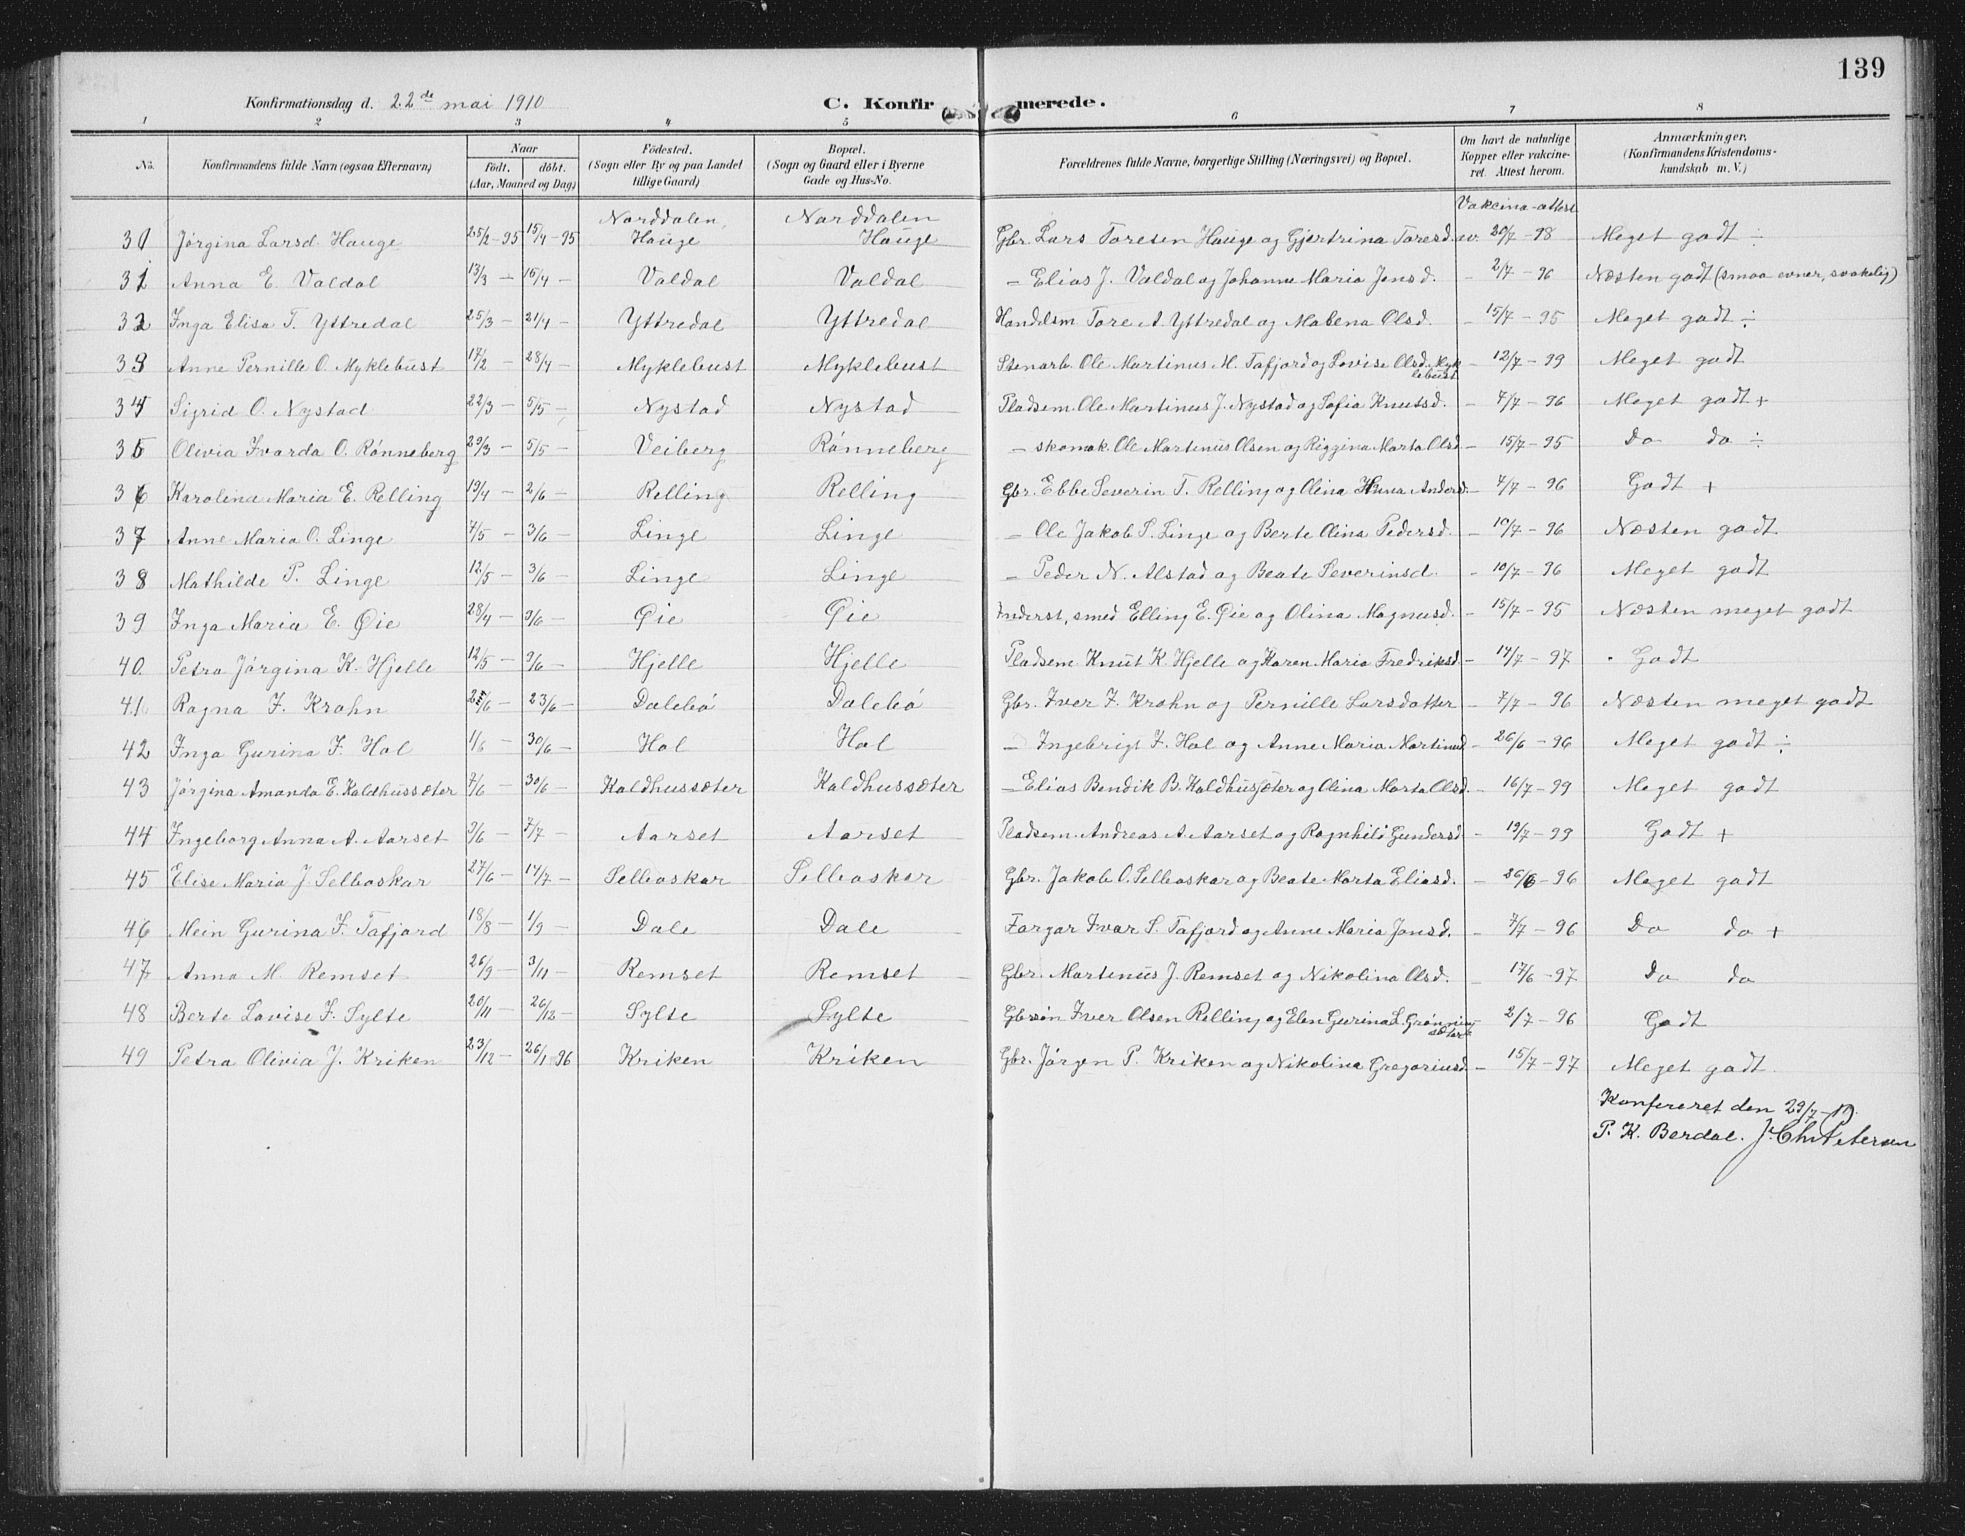 139
Konfirmationsdag d. 22de mai 1910 C. Konfirmerede.
1 2 3 4 5 6 7 8
No. Konfirmandens fulde Navn (ogsaa Efternavn) Naar födt. döbt. (Aar, Maaned og Dag) Födested. (Sogn eller By og paa Landet tillige Gaard) Bopæl. (Sogn og Gaard eller i Byerne Gade og Hus-No. Forældrenes fulde Navne, borgerlige Stilling (Næringsvei) og Bopæl. Om havt de naturlige Kopper eller vakcineret. Attest herom. Anmærkninger. (Konfirmandens Kristendomskundskab m. V.)
Vakcina-attest
30 Jørgina Larsd. Hauge 25/2-95 15/4-95 Norddalen, Hauge Norddalen Hauge Gbr. Lars Toresen Hauge og Gjertrina Toresd. av. 20/7-98 Meget godt ÷
31 Anna E. Valdal 13/3 - 15/4 - Valdal Valdal - Elias J. Valdal og Johanne Maria Jensd. - 2/7 - 96 Næsten godt (smaa evner, svakelig)
32 Inga Elisa T. Yttredal 25/3 - 21/4 - Yttredal Yttredal Handelsm Tore A. Yttredal og Mabena Olsd. - 15/7 - 95 Meget godt ÷
33 Anne Pernille O. Myklebust 17/2 - 28/4 - Myklebust Myklebust Stenarb. Ole Martinus M. Tafjord og Lovise Olsd. Myklebust - 12/7 - 99 Meget godt
34 Sigrid O. Nystad 22/3 - 5/5 - Nystad Nystad Pladsem. Ole Martinus J. Nystad og Sofia Knutsd. - 7/7 - 96 Meget godt +
35 Olivia Ivarda O. Rønneberg 29/3 - 5/5 - Veiberg Rønneberg - skomak. Ole Martinus Olsen og Riggina Marta Olsd - 15/7 - 95 Do do ÷
36 Karolina Maria E. Relling 19/4 - 2/6 - Relling Relling Gbr. Ebbe Severin T. Relling og Olina Anna Andersd. - 7/7 - 96 Godt +
37 Anne Maria O. Linge 7/5 - 3/6 - Linge Linge - Ole Jakob P. Linge og Berte Olina Pedersd. - 10/7 - 96 Næsten godt
38 Mathilde P. Linge 12/5 - 3/6 - Linge Linge - Peder N. Alstad og Beate Severinsd. - 10/7 - 96 Meget godt
39 Inga Maria E. Øie 28/4 - 9/6 - Øie Øie Inderst, smed Elling E. Øie og Olina Magnusd. - 15/7 - 95 Næsten meget godt
40. Petra Jørgina K. Hjelle 12/5 - 9/6 - Hjelle Hjelle Pladsem. Knut K Hjelle og Karen Maria Fredriksd - 14/7 - 97 Godt
41 Ragna I. Krohn 2/6 - 23/6 - Dalebø Dalebø Gbr. Iver I. Krohn og Pernille Larsdatter - 7/7 - 96 Næsten meget godt
42 Inga Gurina I. Hol 1/6 - 30/6 - Hol Hol - Ingebrigt I. Hol og Anne Maria Martinusd - 26/6 - 96 Meget godt ÷
43 Jørgina Amanda E. Kaldhussæter 7/6 - 30/6 - Kaldhussæter Kaldhussæter - Elias Bendik B. Kaldhussæter og Olina Marta Olsd. - 16/7 - 99 Meget godt
44 Ingeborg Anna A. Aarset 9/6 - 7/7 - Aarset Aarset Pladsem. Andreas A. Aarset og Ragnhild Gundersd - 19/7 - 99 Godt +
45 Elise Maria J. Selboskar 27/6 - 14/7 - Selboskar Selboskar Gbr. Jakob O. Selboskar og Beate Marta Eliasd. - 26/6 - 96 Meget godt
46 Mein Gurina I. Tafjord 18/8 - 1/9 - Dale Dale Forgar Ivar S. Tafjord og Anne Maria Jonsd. - 7/7 - 96 Do do +
47 Anna M. Remset 26/9 - 3/11 - Remset Remset Gbr. Martinus J. Remset og Nikolina Olsd. - 17/6 - 97 Do do
48 Berte Lovise I. Sylte 20/11 - 26/12 - Sylte Sylte Gbrsøn Iver Olsen Relling og Elen Gurina L. Grønningsæter 2/7 - 96 Godt
49 Petra Olivia J. Kriken 23/12 - 26/1-96 Kriken Kriken Gbr. Jørgen P. Kriken og Nikolina Gregoriusd - 15/7 - 97 Meget godt.
Konfereret den 29/7-10.
P. K. Berdal. J. Chr Petersen